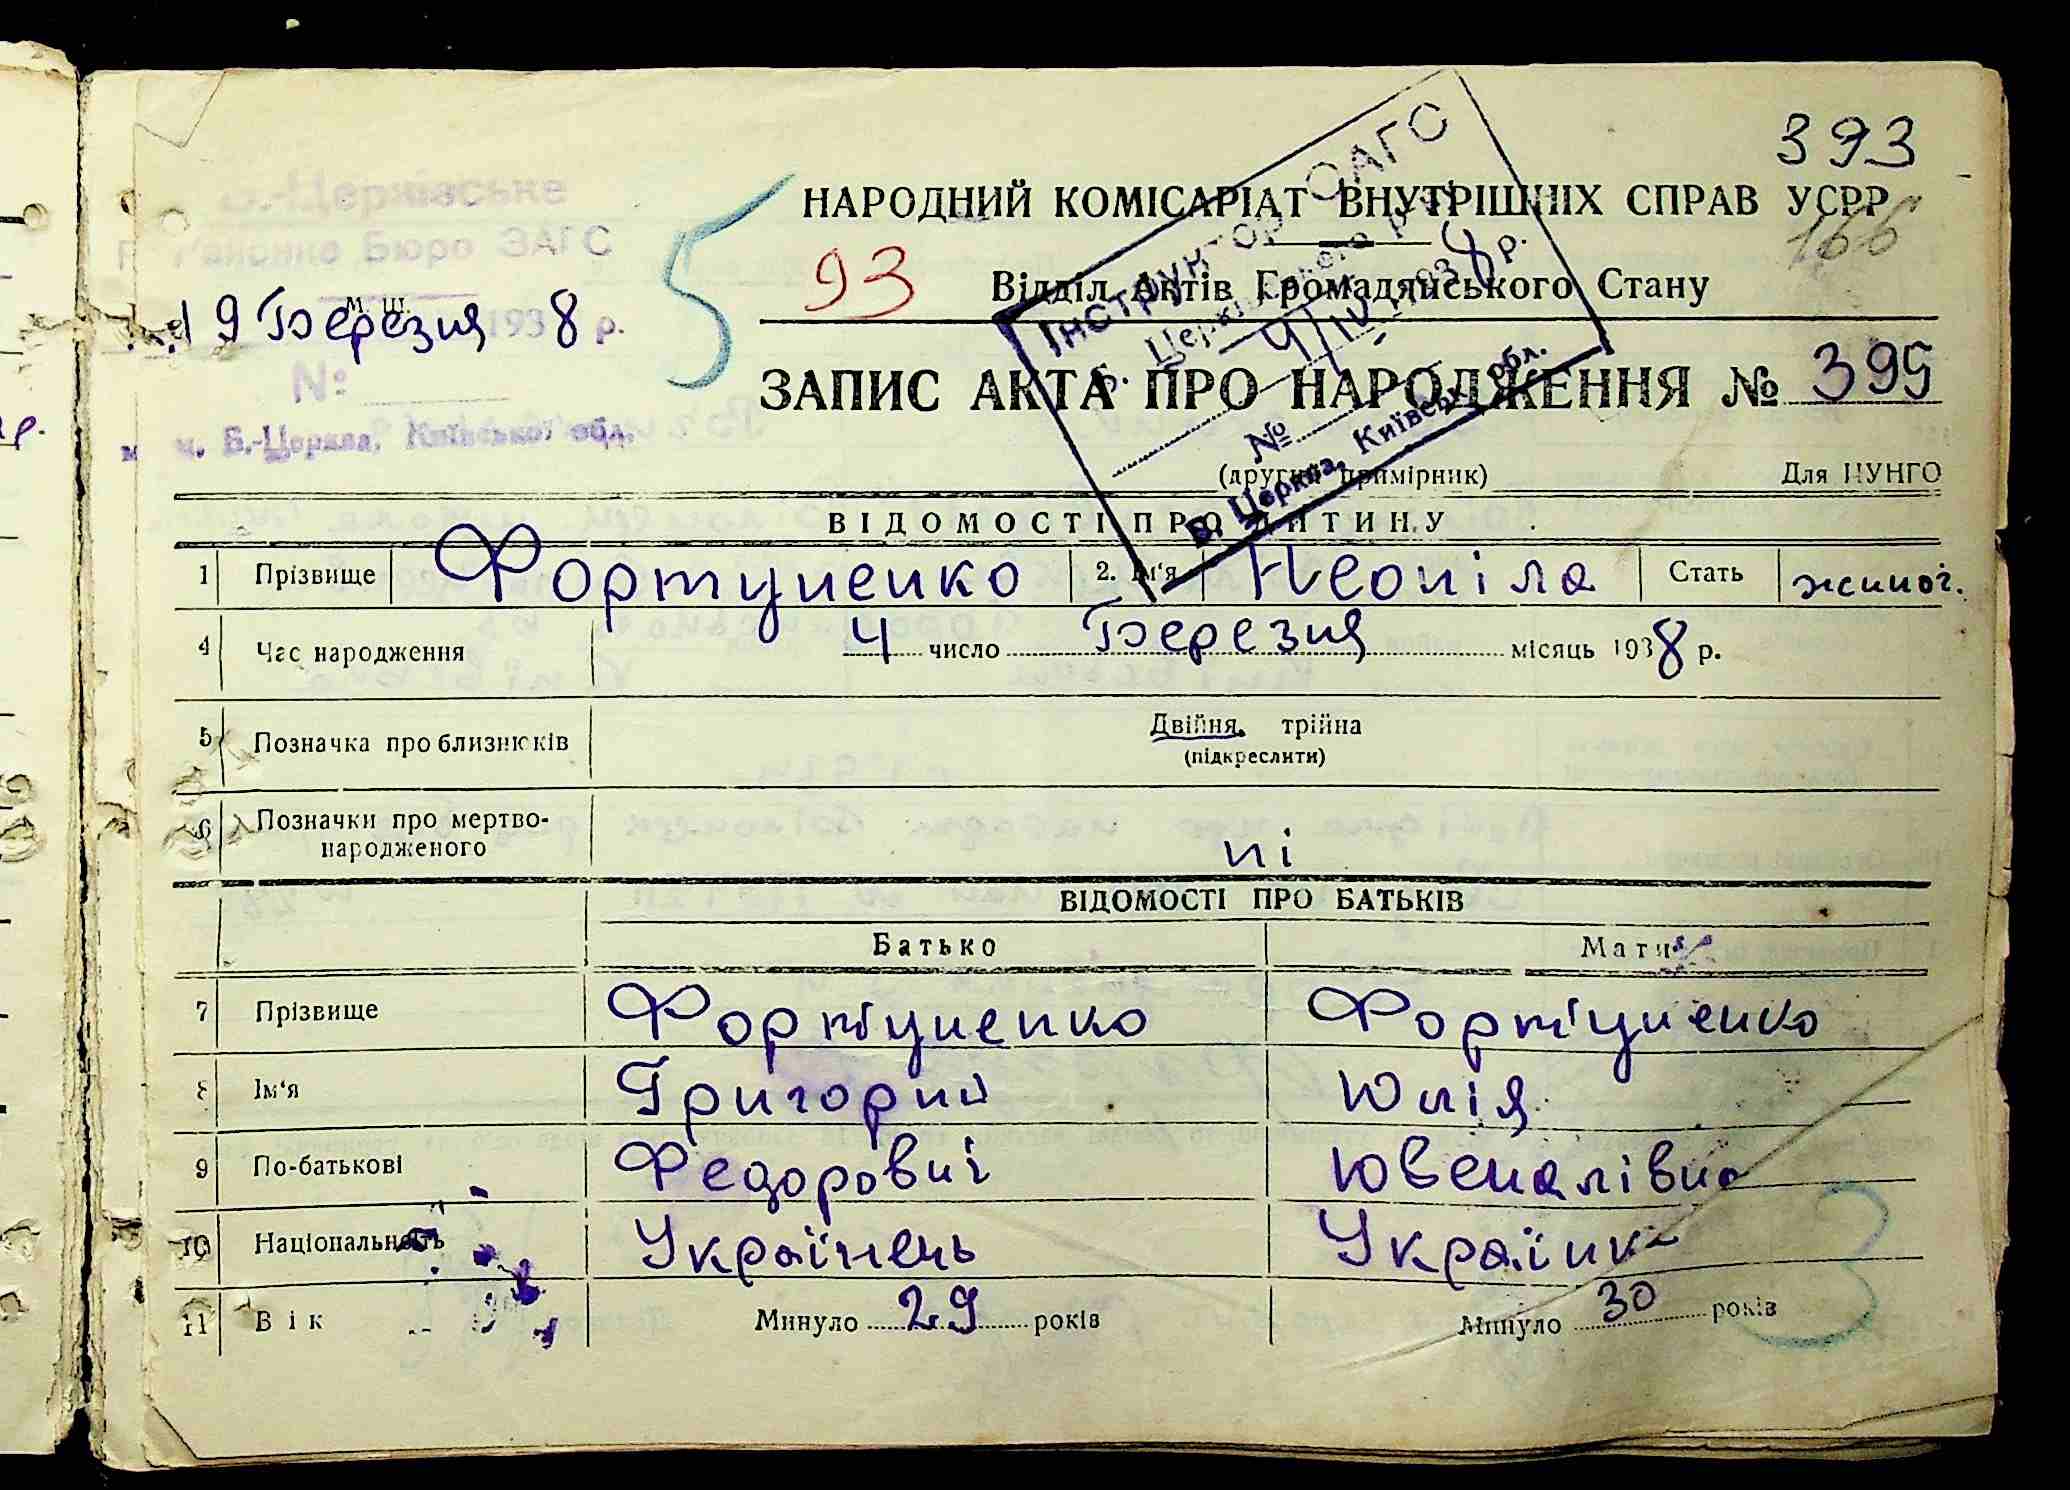 393
НАРОДНИЙ КОМІСАРІАТ ВНУТРІШНІХ СПРАВ УСРР
166
Б.-Церківське
Районне Бюро ЗАГС
5
93
Відділ Актів Громадянського Стану
19 Березня 1938 р.
ЗАПИС АКТА ПРО НАРОДЖЕННЯ № 395
№
м. Б.-Церква, Київської обл.
ІНСТРУКТОР ЗАГС
Б. Церківського р.
4/IV 1938 р.
№
Б. Церква, Київськ. обл.
(другий примірник)
Для ЦУНГО
ВІДОМОСТІ ПРО ДИТИНУ
1 Прізвище Фортуненко 2. Ім'я Неоніла Стать жиноч.
4 Час народження 4 число Березня місяць 1938 р.
5 Позначка про близнюків Двійня, трійна
(підкреслити)
6 Позначки про мертво-
народженого ні
ВІДОМОСТІ ПРО БАТЬКІВ
Батько Мати
7 Прізвище Фортуненко Фортуненко
8 Ім'я Григорий Юлія
9 По-батькові Федорович Ювеналівна
10 Національність Українець Українка
11 Вік Минуло 29 років Минуло 30 років
3